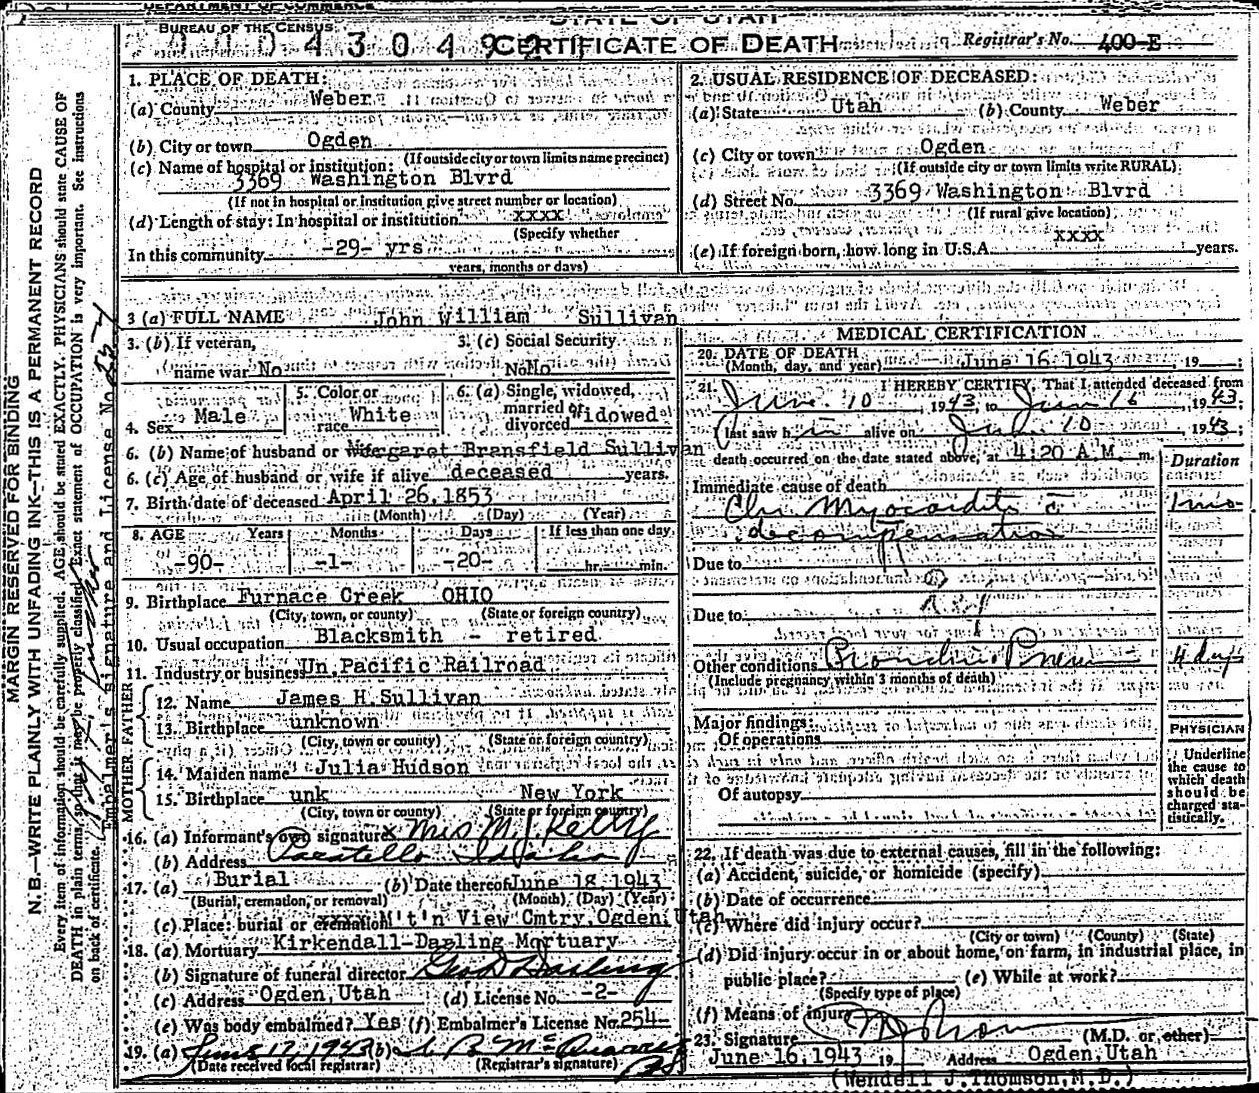 DEPARTMENT OF COMMERCE
BUREAU OF THE CENSUS
STATE OF UTAH
CERTIFICATE OF DEATH
Registrar's No. 400-E
MARGIN RESERVED FOR BINDING
N.B.—WRITE PLAINLY WITH UNFADING INK—THIS IS A PERMANENT RECORD
Every item of information should be carefully supplied. AGE should be stated EXACTLY. PHYSICIANS should state CAUSE OF
DEATH in plain terms, so that it may be properly classified. Exact statement of OCCUPATION is very important. See instructions
on back of certificate.
Embalmer's Signature and License No.
1. PLACE OF DEATH:
(a) County Weber
(b) City or town Ogden
(If outside city or town limits name precinct)
(c) Name of hospital or institution:
3369 Washington Blvrd
(If not in hospital or institution give street number or location)
(d) Length of stay: In hospital or institution xxxx
(Specify whether
In this community -29- yrs
years, months or days)
2. USUAL RESIDENCE OF DECEASED:
(a) State Utah (b) County Weber
(c) City or town Ogden
(If outside city or town limits write RURAL)
(d) Street No. 3369 Washington Blvrd
(If rural give location)
(e) If foreign born, how long in U.S.A. xxxx years.
3 (a) FULL NAME John William Sullivan
3. (b) If veteran,
name war No
3. (c) Social Security
No No
4. Sex Male
5. Color or
race White
6. (a) Single, widowed,
married or
divorced widowed
6. (b) Name of husband or Margaret Bransfield Sullivan
6. (c) Age of husband or wife if alive deceased years.
7. Birth date of deceased April 26.1853
(Month) (Day) (Year)
8. AGE Years Months Days If less than one day
-90- -1- -20- hr. min.
9. Birthplace Furnace Creek OHIO
(City, town, or county) (State or foreign country)
10. Usual occupation Blacksmith - retired
11. Industry or business Un.Pacific Railroad
FATHER
12. Name James H.Sullivan
13. Birthplace unknown
(City, town or county) (State or foreign country)
MOTHER
14. Maiden name Julia Hudson
15. Birthplace unk New York
(City, town or county) (State or foreign country)
16. (a) Informant's own signature x Mrs M J Kelly
(b) Address Pocatello Idaho
17. (a) Burial (b) Date thereof June 18.1943
(Burial, cremation, or removal) (Month) (Day) (Year)
(c) Place: burial or cremation M't'n View Cmtry.Ogden,Utah
18. (a) Mortuary Kirkendall-Darling Mortuary
(b) Signature of funeral director Geo D Darling
(c) Address Ogden,Utah (d) License No. -2-
(e) Was body embalmed? Yes (f) Embalmer's License No. 254-
19. (a) June 17, 1943 (b)
(Date received local registrar) (Registrar's signature)
MEDICAL CERTIFICATION
20. DATE OF DEATH
(Month, day, and year) June 16.1943 , 19 ;
21. I HEREBY CERTIFY, That I attended deceased from
Jun. 10 , 1943, to Jun 16 , 1943.
I last saw him alive on Jun 10 1943;
death occurred on the date stated above, at 4:20 A.M. m.
Duration
Immediate cause of death
Chr Myocarditis c̄ 1 mo-
decompensation
Due to
Due to
Other conditions Broncho Pneu 4 days
(Include pregnancy within 3 months of death)
Major findings:
Of operations
Of autopsy
PHYSICIAN
Underline
the cause to
which death
should be
charged sta-
tistically.
22. If death was due to external causes, fill in the following:
(a) Accident, suicide, or homicide (specify)
(b) Date of occurrence
(c) Where did injury occur?
(City or town) (County) (State)
(d) Did injury occur in or about home, on farm, in industrial place, in
public place? (e) While at work?
(Specify type of place)
(f) Means of injury
23. Signature (M.D. or other)
June 16.1943 19 Address Ogden,Utah
(Wendell J.Thomson,M.D.)